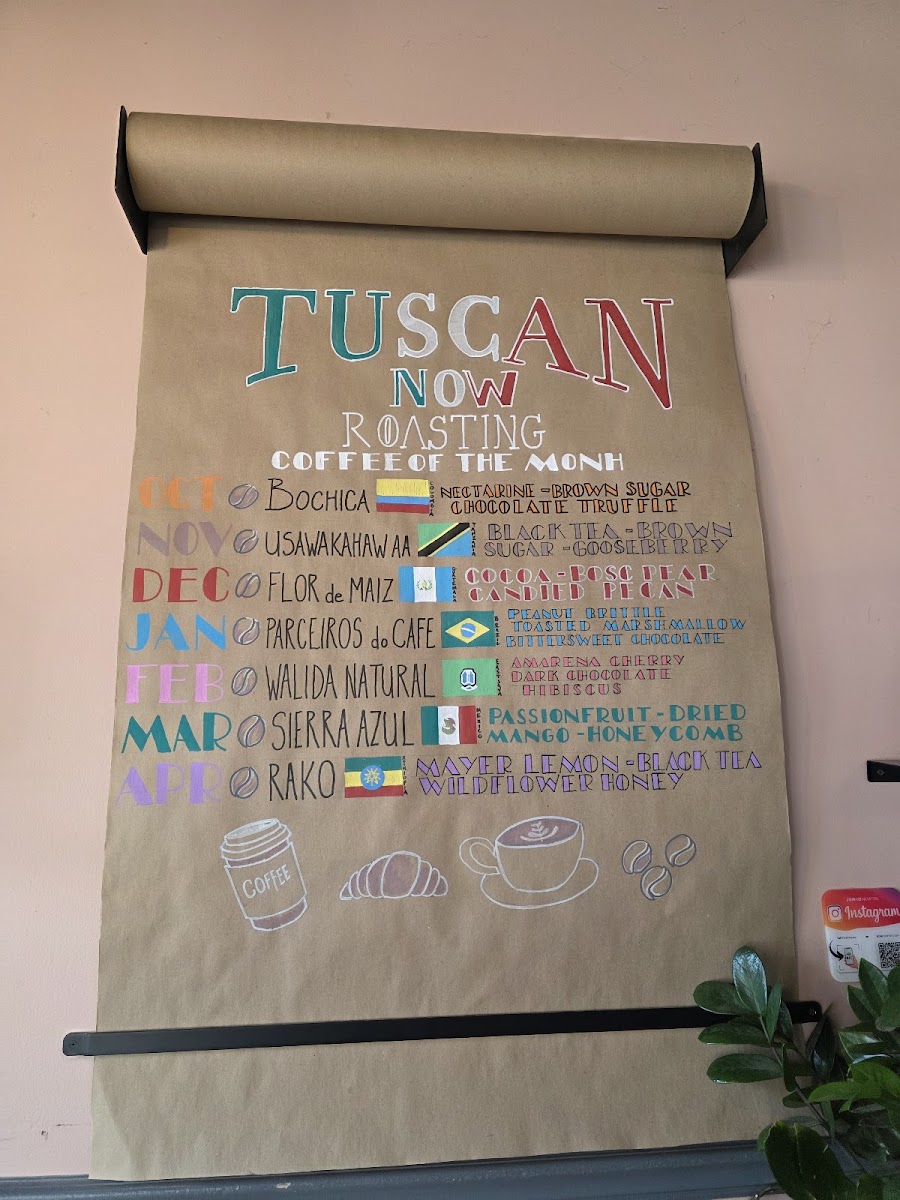 TUSCAN
NOW
ROASTING
COFFEE OF THE MONH
OCT BOCHICA COLOMBIA NECTARINE - BROWN SUGAR
CHOCOLATE TRUFFLE
NOV USAWAKAHAW AA TANZANIA BLACK TEA - BROWN
SUGAR - GOOSEBERRY
DEC FLOR de MAIZ COCOA - BOSC PEAR
CANDIED PECAN
JAN PARCEIROS do CAFE PEANUT BRITTLE
TOASTED MARSHMALLOW
BITTERSWEET CHOCOLATE
FEB WALIDA NATURAL AMARENA CHERRY
DARK CHOCOLATE
HIBISCUS
MAR SIERRA AZUL MEXICO PASSIONFRUIT - DRIED
MANGO - HONEYCOMB
APR RAKO MAYER LEMON - BLACK TEA
WILDFLOWER HONEY
COFFEE
Instagram